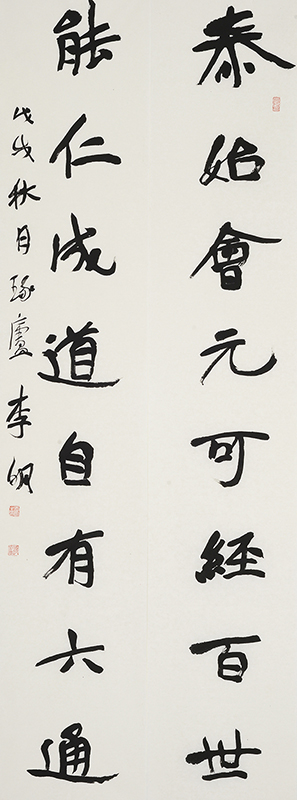 泰始會元可經百世
能仁成道自有六通
戊戌秋月琢廬李明